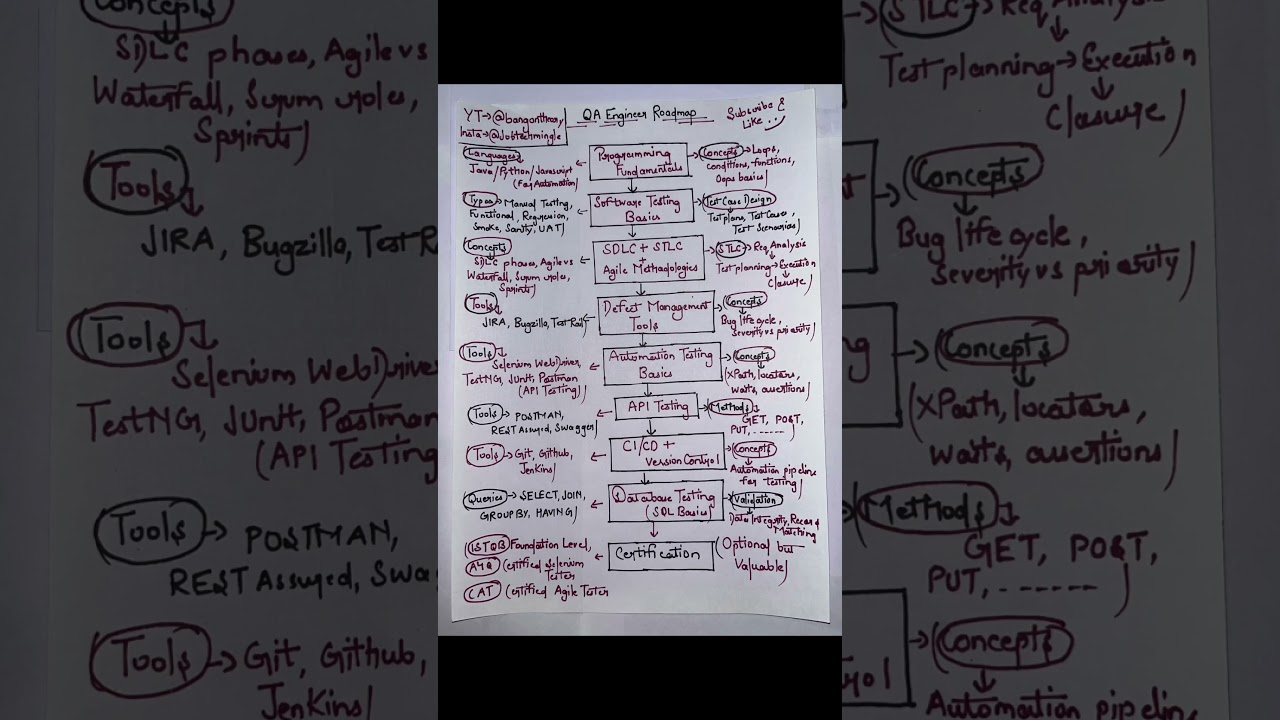 YT→@bangonthway
Insta→@Jobtechmingle
QA Engineer Roadmap
Subscribe &
Like
Languages
Java/Python/Javascript
(For Automation)
Programming
Fundamentals
Concepts → Loops,
conditions, functions,
Oops basics
Types → Manual Testing,
Functional, Regression,
Smoke, Sanity, UAT
Software Testing
Basics
Test Case Design
Test plans, Test Cases,
Test Scenarios
Concepts
SDLC phases, Agile vs
Waterfall, Scrum roles,
Sprints
SDLC + STLC
+
Agile Methodologies
STLC → Req Analysis
Test planning → Execution
Closure
Tools
JIRA, Bugzilla, TestRail
Defect Management
Tools
Concepts
Bug life cycle,
Severity vs priority
Tools
Selenium WebDriver,
TestNG, JUnit, Postman
(API Testing)
Automation Testing
Basics
Concepts
XPath, locators,
waits, assertions
Tools → POSTMAN,
REST Assured, Swagger
API Testing
Methods
GET, POST,
PUT, ------
Tools → Git, Github,
Jenkins
CI/CD +
Version Control
Concepts
Automation pipeline
for testing
Queries → SELECT, JOIN,
GROUP BY, HAVING
Database Testing
(SQL Basics)
Validation
Data Integrity, Record
Matching
ISTQB Foundation Level,
Certified Selenium
Tester
CAT Certified Agile Tester
Certification
(Optional but
Valuable)